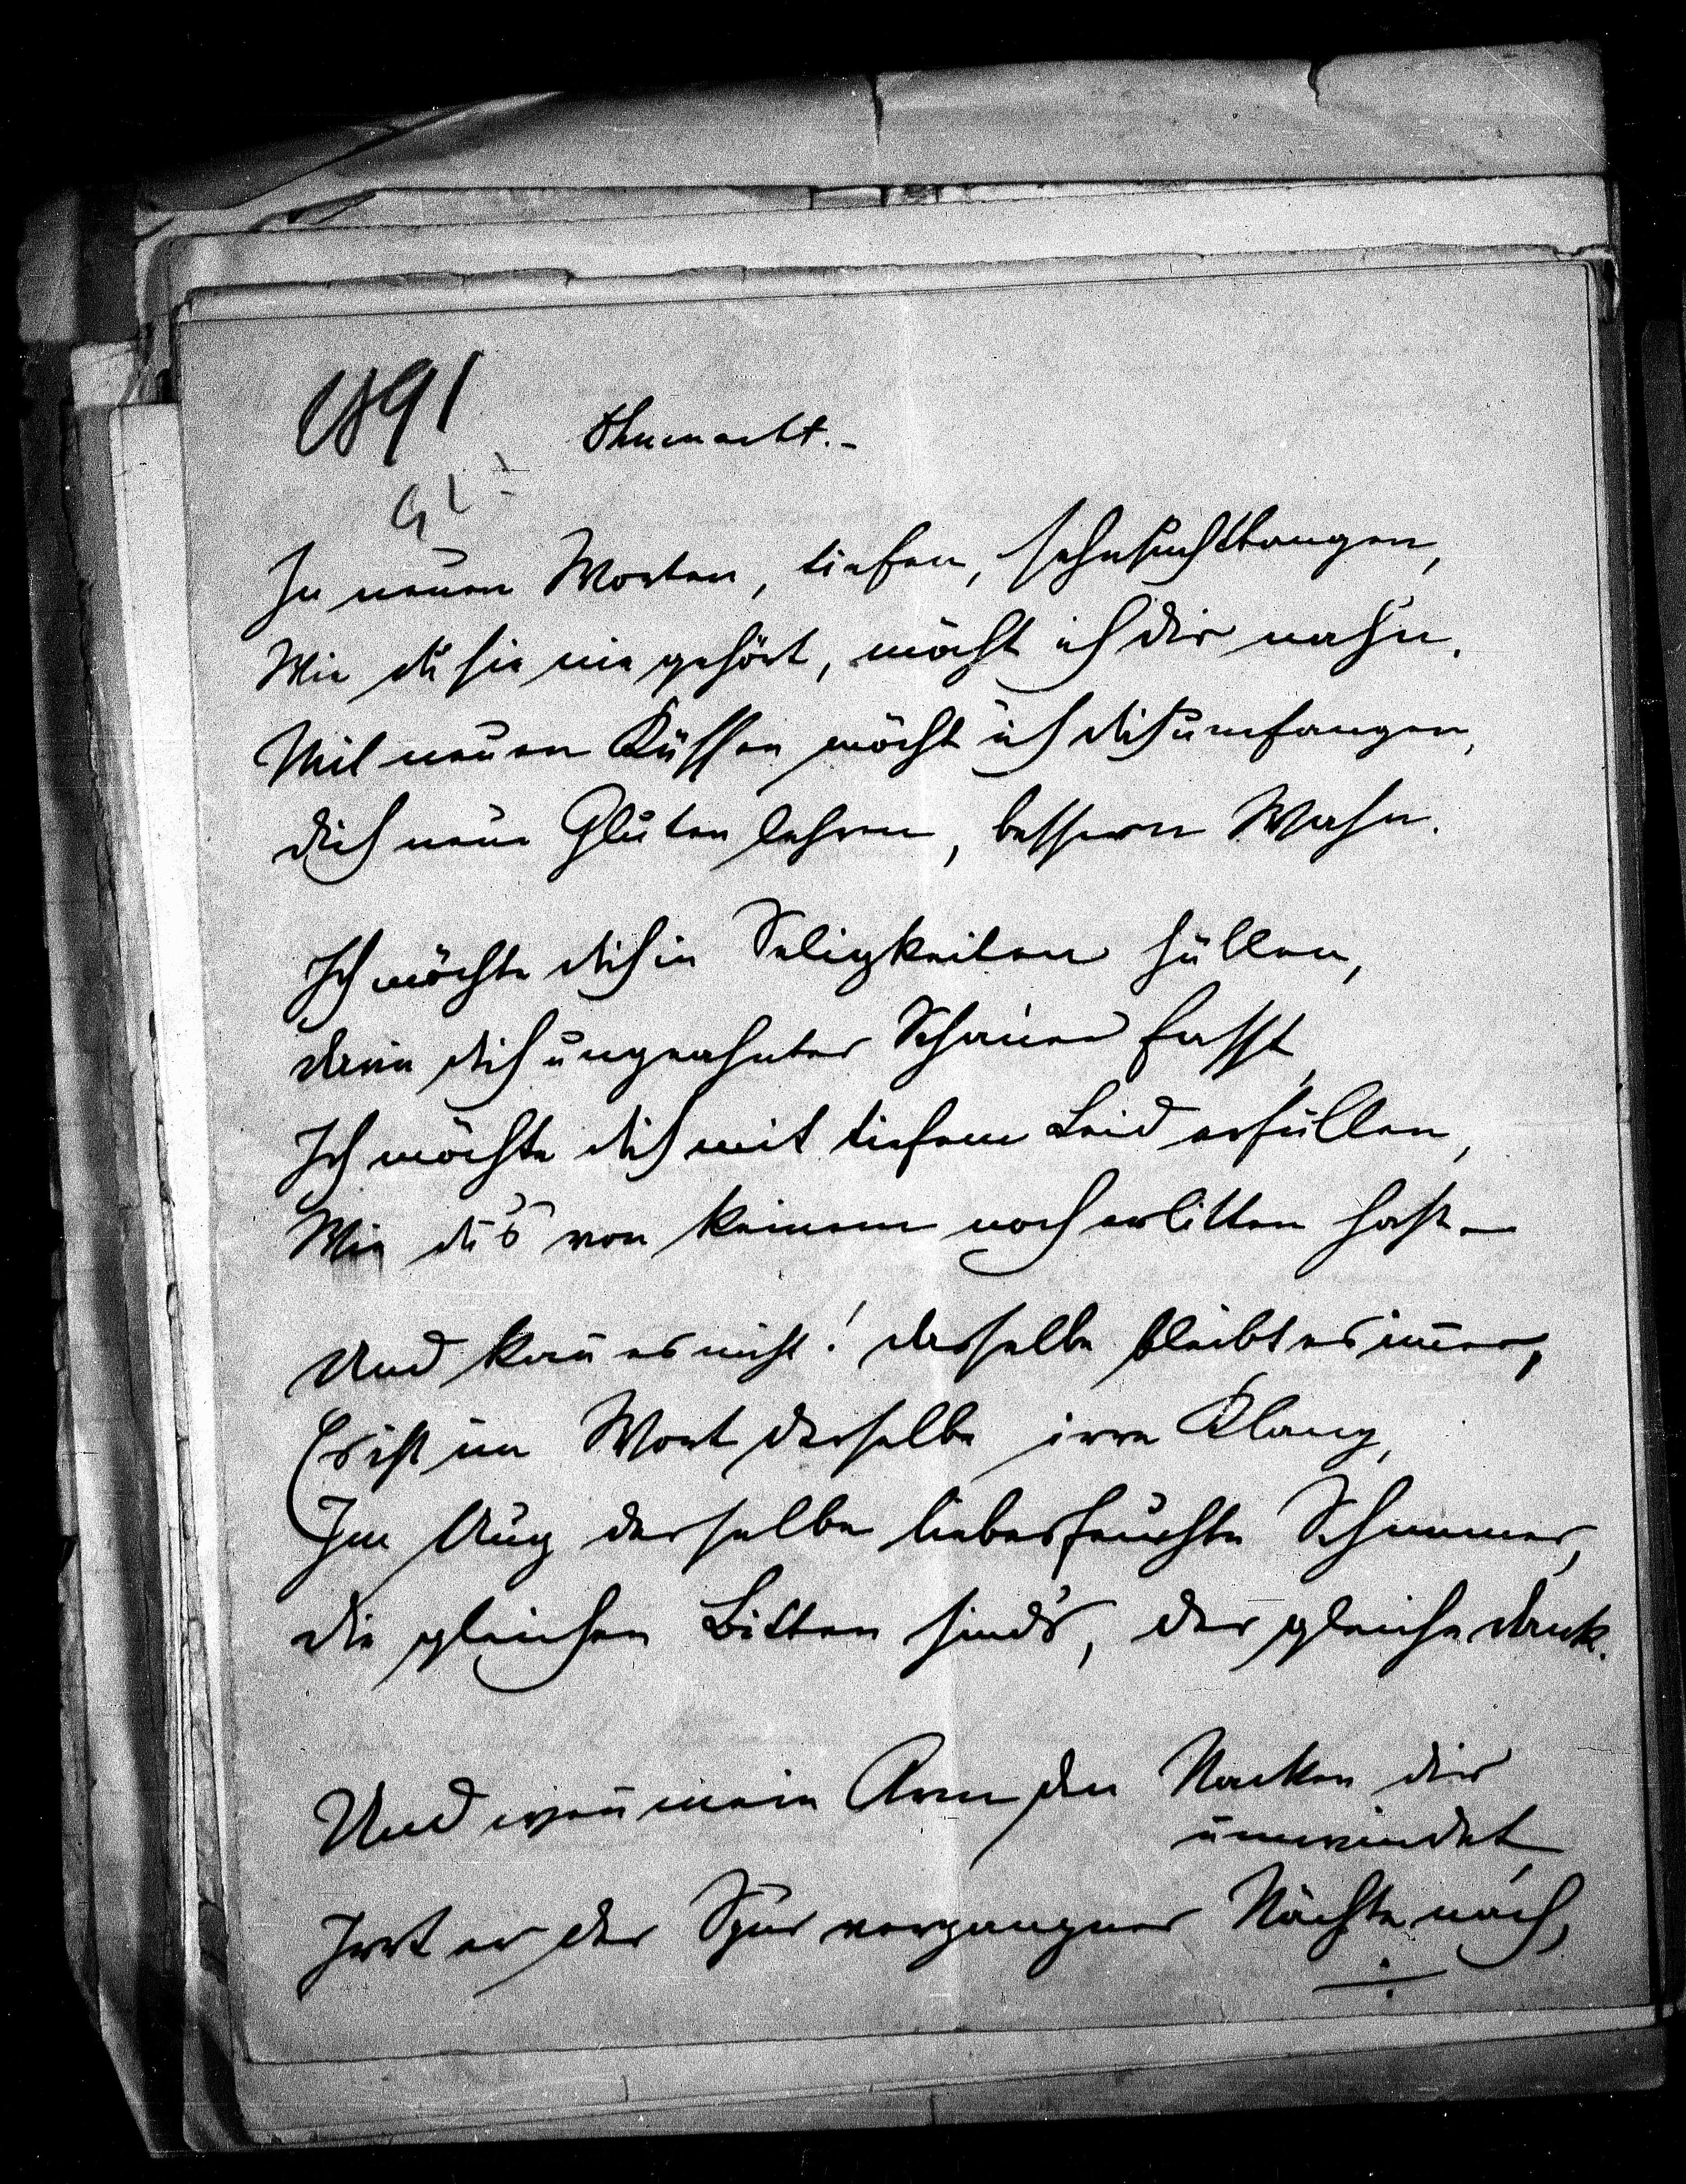 1891
Ohnmacht.-
In neuen Worten, tiefen, sehnsuchtbangen,
Wie du sie nie gehört, möcht ich dir nahn.
Mit neuen Küssen möcht ich dich umfangen,
dich neue Gluten lehren, bessern Wahn.
Ich möchte dich in Seligkeiten hüllen,
darin dich ungeahnter Schauer fasst,
Ich möchte dich mit tiefem Leid erfüllen,
Wie du's von keinem noch erlitten hast –
Und kan̄ es nicht! dasselbe bleibt es im̄er,
Es ist im Wort derselbe irre Klang,
Im Aug derselbe liebesfeuchte Schimmer,
die gleichen Bitten sinds, der gleiche dank.
Und wen̄ mein Arm den Nacken dir
umwindet,
Irrt er der Spur vergangner Nächte nach,